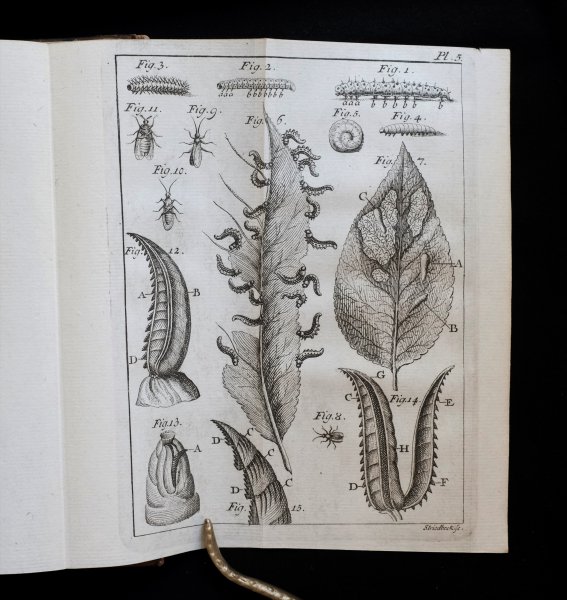 Pl. 5.
Fig. 3.
Fig. 2.
Fig. 1.
a a a b b b b b b b
a a a b b b b b
Fig. 11.
Fig. 9.
Fig. 6.
Fig. 5.
Fig. 4.
Fig. 7.
Fig. 10.
C
Fig. 12.
A
A
B
B
D
G
C
Fig. 14.
E
Fig. 13.
Fig. 8.
A
D
C
C
H
C
D
D
F
Fig. 15.
Striedbeck sc.